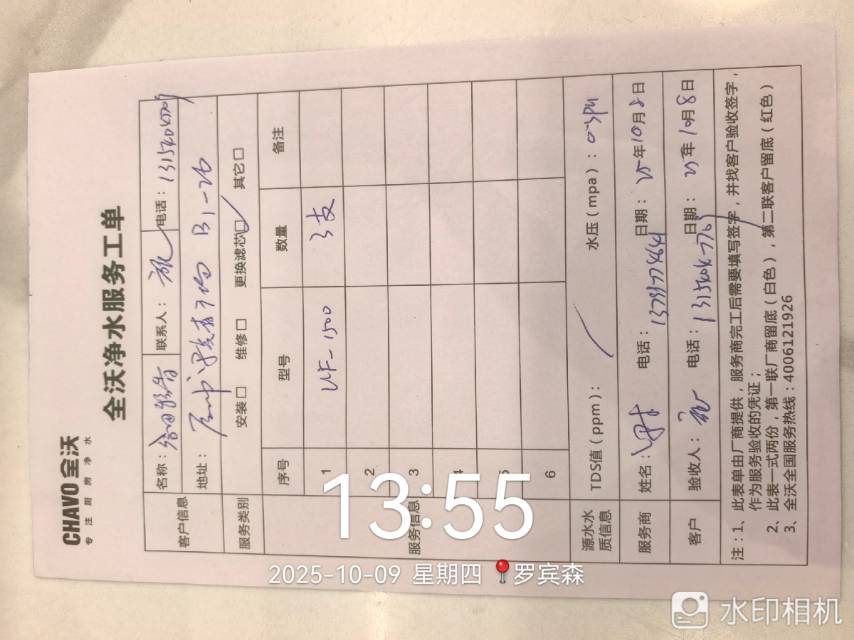 CHAVO 全沃
专注厨房净水
全沃净水服务工单
客户信息
名称： 联系人： 电话：
地址： B1-26
服务类别 安装□ 维修□ 更换滤芯□ 其它□
服务信息
序号 型号 数量 备注
1 UF-1500 3支
2
3
4
5
6
源水水质信息 TDS值（ppm）： 水压（mpa）：
服务商 姓名： 电话： 日期：25年10月8日
客户 验收人： 电话： 日期：25年10月8日
注：1、此表单由厂商提供，服务商完工后需要填写签字，并找客户验收签字，
作为服务验收的凭证；
2、此表一式两份，第一联厂商留底（白色），第二联客户留底（红色）
3、全沃全国服务热线：4006121926
13:55
2025-10-09 星期四 罗宾森
水印相机